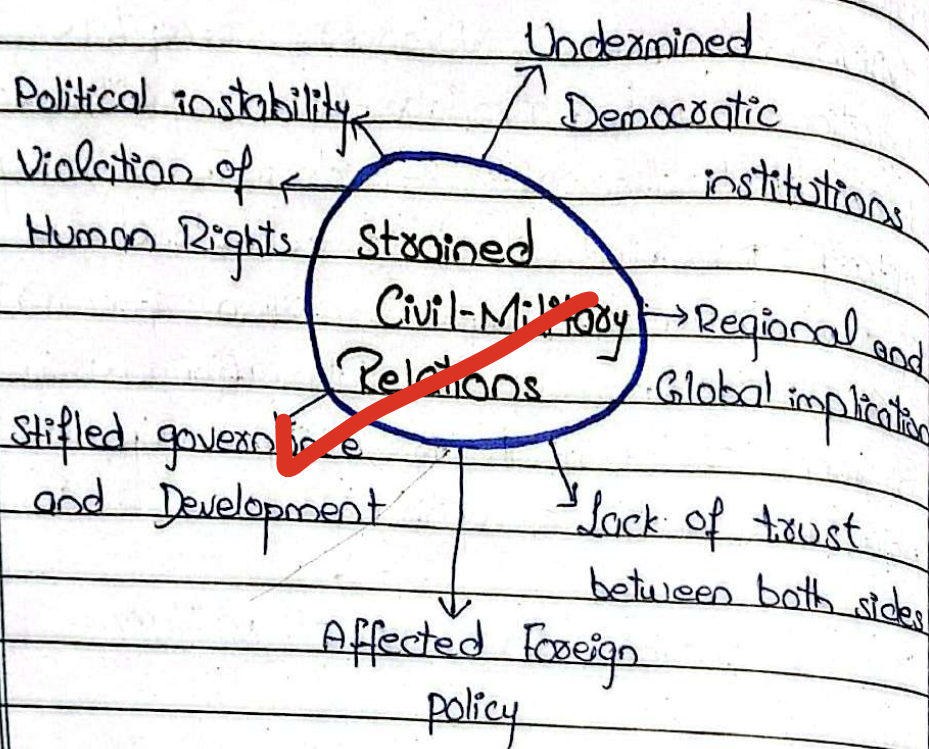 Undermined
Democratic
institutions
Political instability
Violation of
Human Rights
Strained
Civil-Military
Relations
Regional and
Global implication
Stifled governance
and Development
Lack of trust
between both sides
Affected Foreign
policy